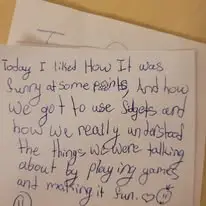 I
Today I liked How It was
Sunny at some points, And how
we got to use fidgets and
how we really understood
the things we were talking
about by playing games
and making it fun.